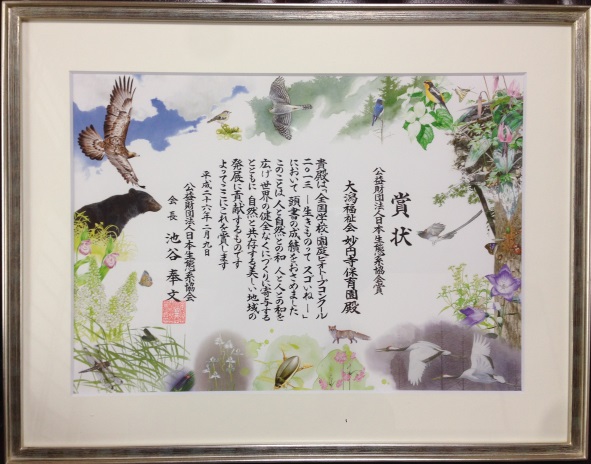 賞状
公益財団法人日本生態系協会賞
大潟福祉会 妙円寺保育園殿
貴殿は、「全国学校・園庭ビオトープコンクール
二〇一三 ―生きものってスゴいね―」
において 頭書の成績をおさめました
このことは 人と自然との和 人と人との和を
広げ 世界の健全なくにづくりに寄与する
とともに 自然と共存する美しい地域の
発展に貢献するものです
よってここにこれを賞します
平成二十六年二月九日
公益財団法人日本生態系協会
会長 池谷奉文